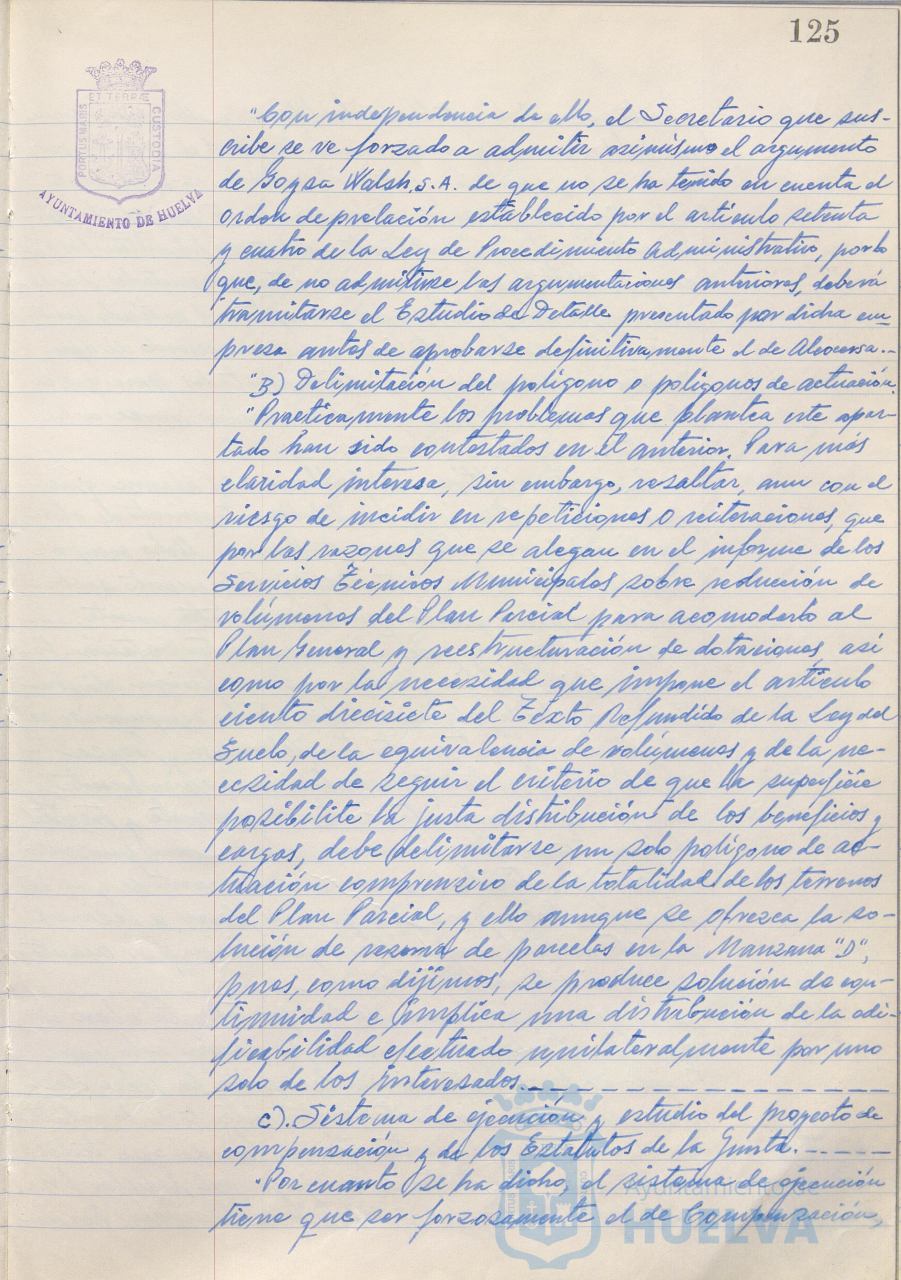 125
ET TERRÆ
PORTUS MARIS
CUSTODIA
AYUNTAMIENTO DE HUELVA
"Con independencia de ello, el Secretario que sus-
cribe se ve forzado a admitir asimismo el argumento
de Goysa Walsh, S.A. de que no se ha tenido en cuenta el
orden de prelación establecido por el artículo setenta
y cuatro de la Ley de Procedimiento Administrativo, por lo
que, de no admitirse las argumentaciones anteriores, deberá
tramitarse el Estudio de Detalle presentado por dicha em-
presa antes de aprobarse definitivamente el de Alcocersa.-
"B) Delimitación del polígono o polígonos de actuación.
"Practicamente los problemas que plantea este apar-
tado han sido contestados en el anterior. Para más
claridad interesa, sin embargo, resaltar, aun con el
riesgo de incidir en repeticiones o reiteraciones, que
por las razones que se alegan en el informe de los
Servicios Técnicos Municipales sobre reducción de
volúmenes del Plan Parcial para acomodarlo al
Plan General y reestructuración de dotaciones, así
como por la necesidad que impone el artículo
ciento diecisiete del Texto Refundido de la Ley del
Suelo, de la equivalencia de volúmenes y de la ne-
cesidad de seguir el criterio de que la superficie
posibilite la justa distribución de los beneficios y
cargas, debe delimitarse un solo polígono de ac-
tuación comprensivo de la totalidad de los terrenos
del Plan Parcial, y ello aunque se ofrezca la so-
lución de reserva de parcelas en la Manzana "D",
pues, como dijimos, se produce solución de con-
tinuidad e implica una distribución de la edi-
ficabilidad efectuado unilateralmente por uno
solo de los interesados.
c). Sistema de ejecución y estudio del proyecto de
compensación y de los Estatutos de la Junta.
"Por cuanto se ha dicho, el sistema de ejecución
tiene que ser forzosamente el de Compensación,
Ayuntamiento de
HUELVA